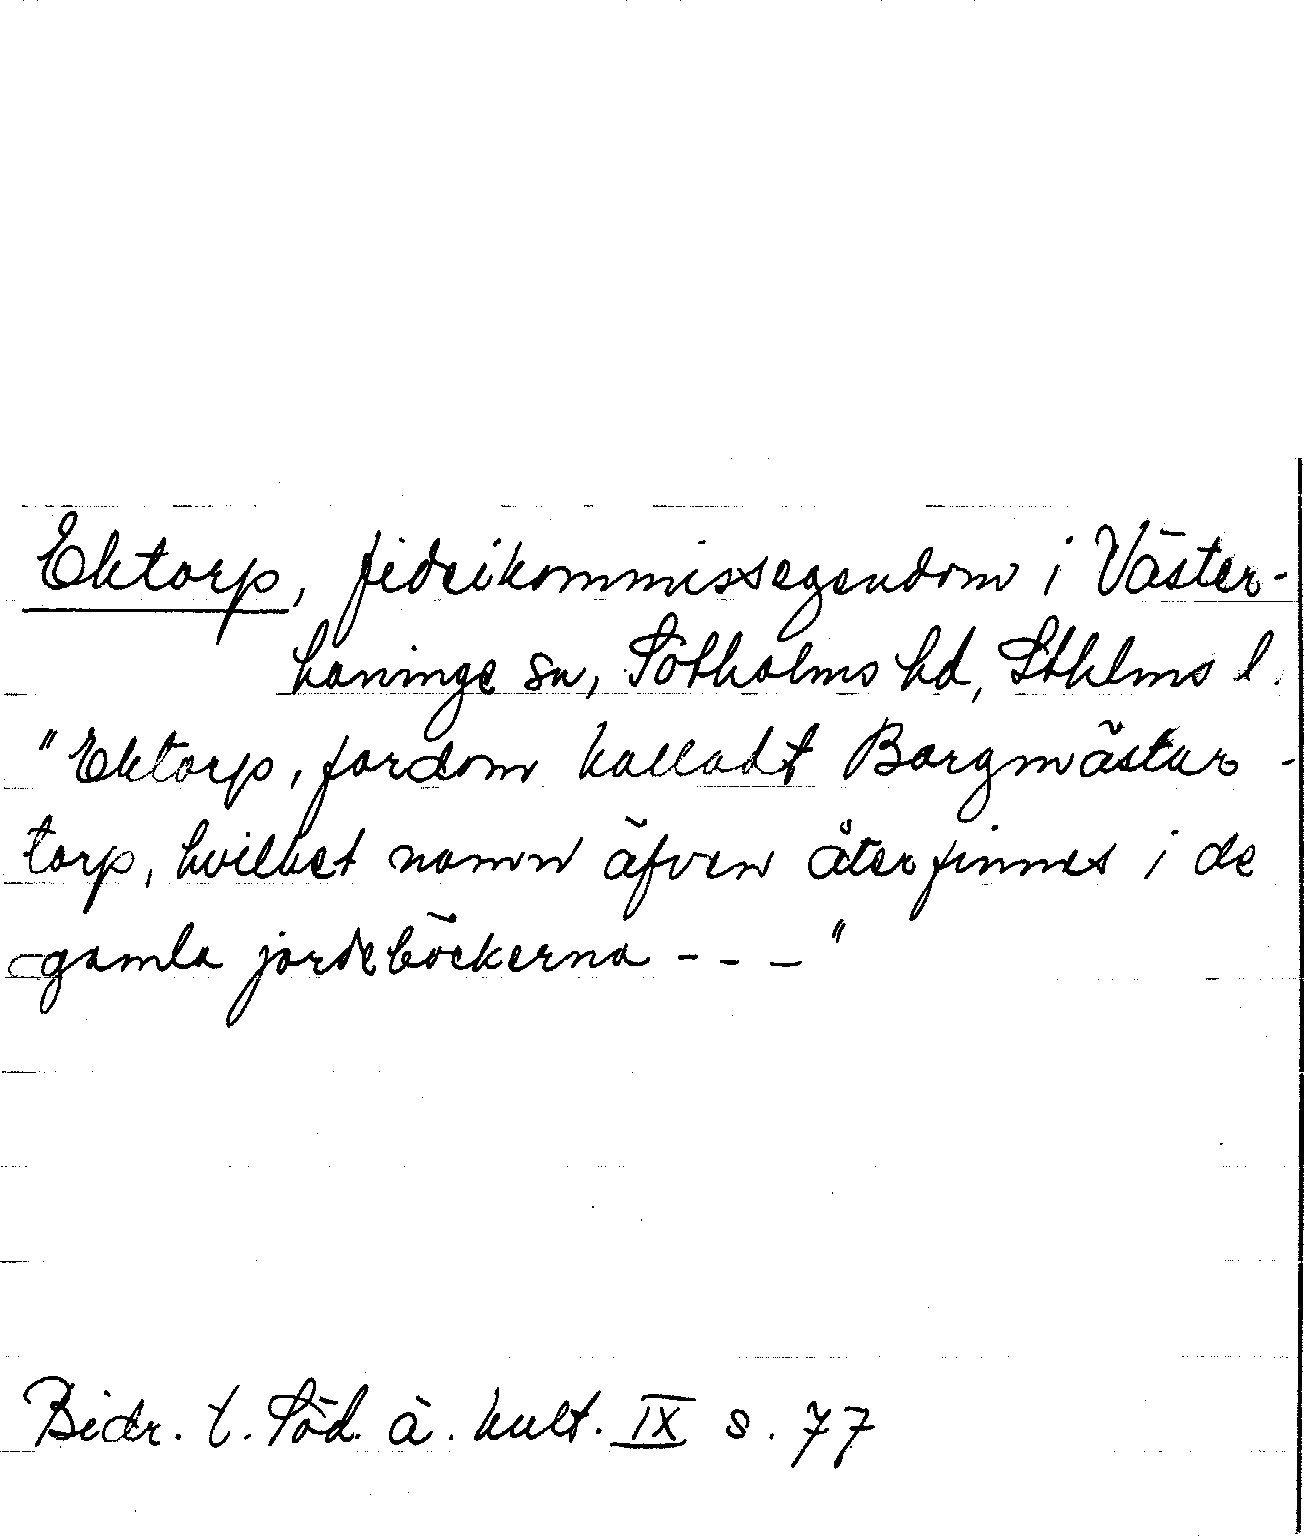 Ektorp, fideikommissegendom i Väster-
haninge sn, Sotholms hd, Sthlms l.
"Ektorp, fordom kalladt Borgmästar-
torp, hvilket namn äfven återfinnes i de
gamla jordeböckerna - - - "
Bidr. t. Söd. ä. kult. IX s. 77